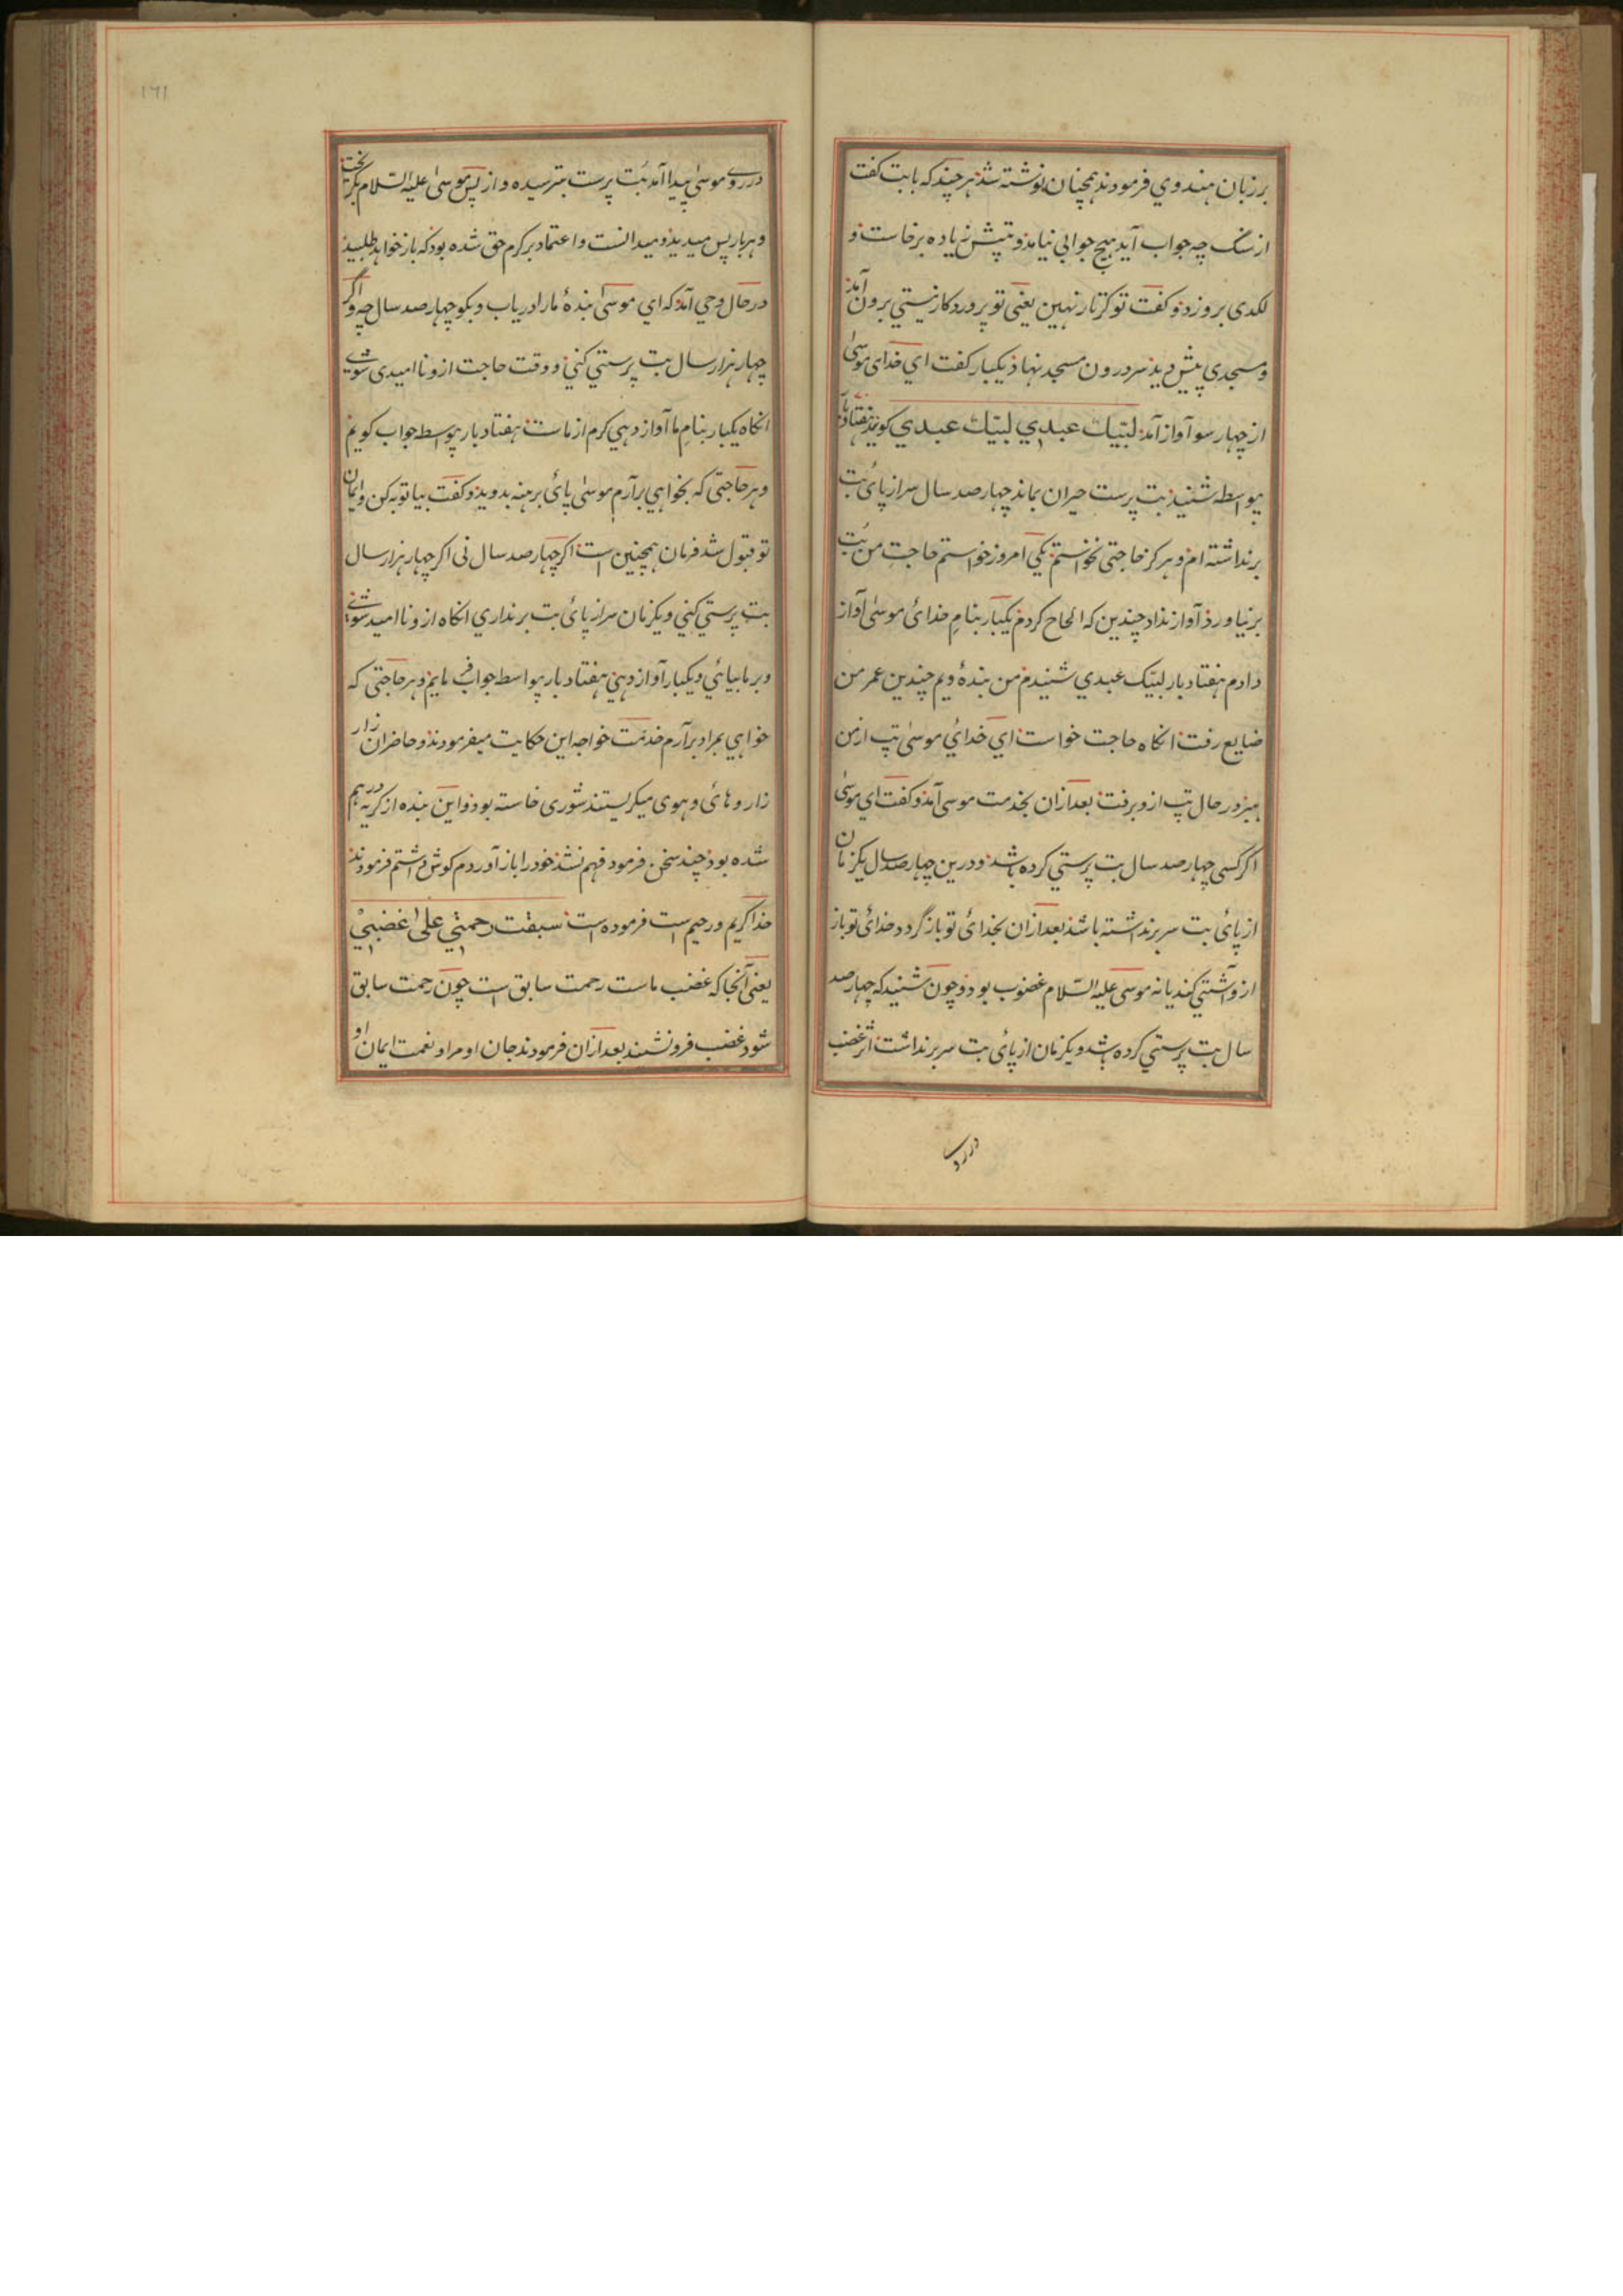 بر زبان هندوي فرمودند همچنان نوشته شد هر چند که با بت کفت
از سنک چه جواب آید هیچ جوابي نیامد و تپش زیاده برخاست و
لکدی بروزد و کفت تو کرتار نهین یعنی تو پروردکار نیستي برون آمد
و مسجدی پیش دید سر درون مسجد نهاد یکبار کفت اي خدای موسی
از چهار سو آواز آمد لبّیك عبدي لبّیك عبدي کویند هفتاد بار
بیواسطه شنید بت پرست حیران بماند چهار صد سال سر از پائ بت
برنداشته ام و هرکز حاجتی نخواستم یکي امروز خواستم حاجت من بت
برنیاورد آواز نداد چندین که الحاح کردم یکبار بنام خدائ موسی آواز
دادم هفتاد بار لبیک عبدي شنیدم من بندۀ ویم چندین عمر من
ضایع رفت انکاه حاجت خواست اي خدائي موسی تپ از من
ببر در حال تپ ازو برفت بعد ازان بخدمت موسی آمد و کفت اي موسی
اکر کسی چهار صد سال بت پرستي کرده باشد و درین چهار صد سال یکزمان
از پائ بت سر برنداشته باشد بعد ازان بخدائ تو باز گردد خدائ تو باز
ازو آشتي کند یا نه موسی علیه السّلام غضوب بود و چون شنید که چهار صد
سال بت پرستي کرده باشد و یکزمان از پائ بت سر برنداشت اثر غضب
در روے
۱۶۱
در روے موسیٰ پیدا آمد بُت پرست بترسیده و از پس موسیٰ علیه السّلام بکریخت
و هر بار پس میدید و میدانست و اعتماد بر کرم حق شده بود که باز خواهد طلبید
در حال وحي آمد که اي موسیٰ بندۀ ما را دریاب و بکو چهار صد سال چه و اگر
چهار هزار سال بت پرستي کني و وقت حاجت ازو نا امیدی شوے
انکاه یکبار بنام ما آواز دهي کرم از ماست هفتاد بار بیواسطه جواب کویم
و هر حاجتی که بخواهي برآرم موسیٰ پائ برهنه بدوید و کفت بیا توبه کن و ایمان
تو قبول شد فرمان همچنین است اکر چهار صد سال نی اکر چهار هزار سال
بت پرستي کني و یکزمان سر از پائ بت برنداري انکاه ازو نا امید شوے
و بر ما بیائي و یکبار آواز دهي هفتاد بار بیواسطه جواب فرمایم و هر حاجتی که
خواهي بمراد برآرم خدمت خواجه این حکایت میفرمودند و حاضران زار
زار و هائ و هوی میکریستند شوری خاسته بود و این بنده از کریه درهم
شده بود چند سخن فرمود فهم نشد خود را باز آوردم کوش داشتم فرمودند
خدا کریم و رحیم است فرموده است سبقت رحمتي علیٰ غضبي
یعنی آنجا که غضب ماست رحمت سابق است چون رحمت سابق
شود غضب فرونشیند بعد ازان فرمودند جان او مر او نعمت ایمان او